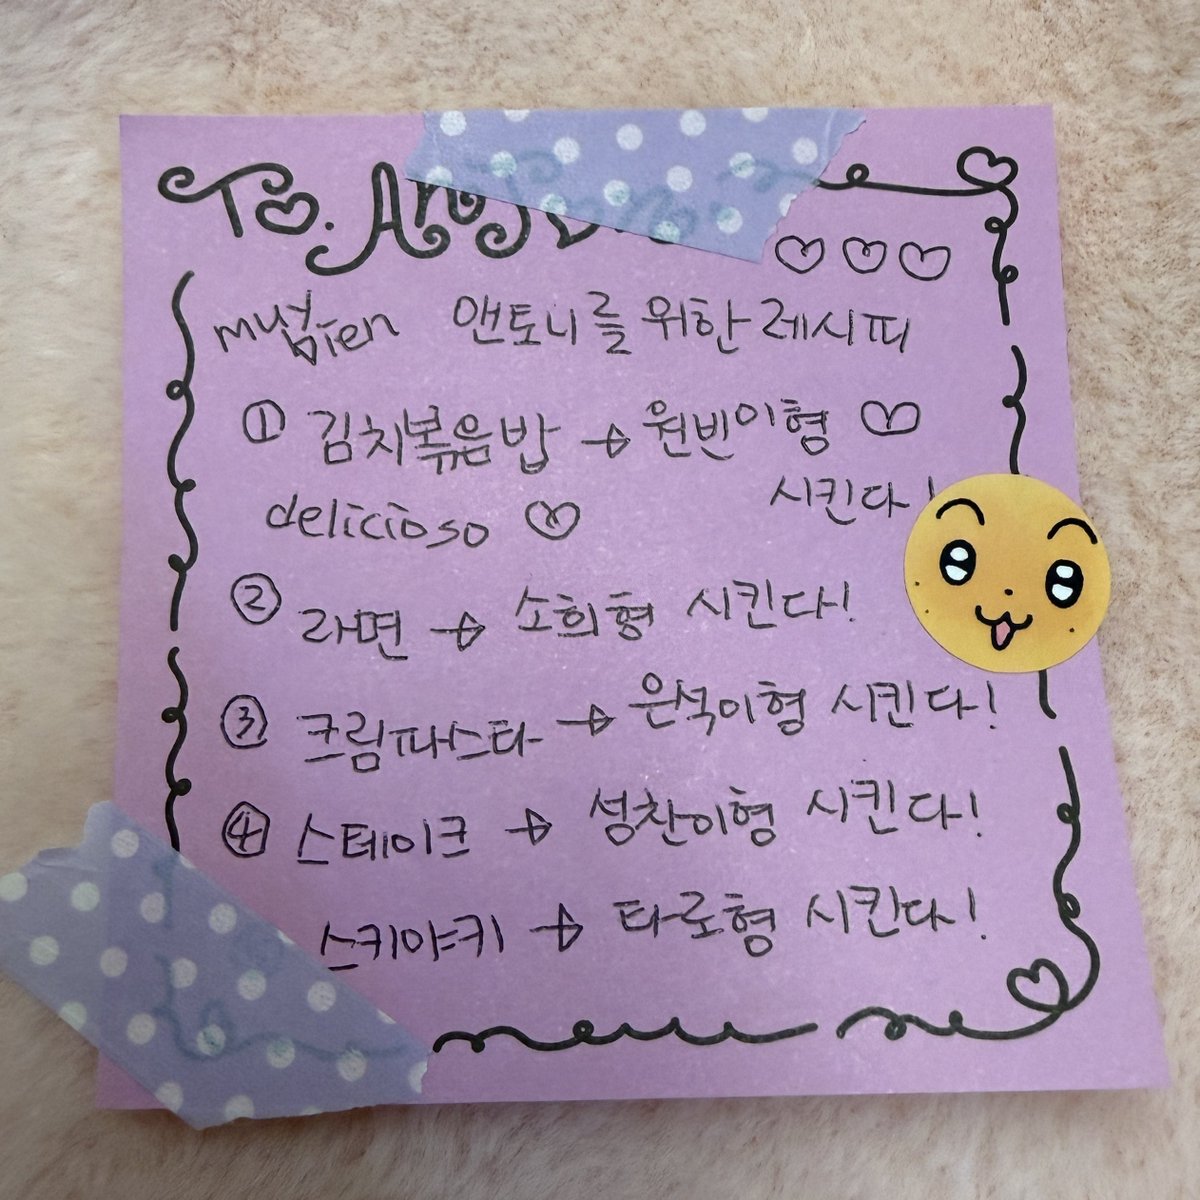 To.
muy bien 앤토니를 위한 레시피
① 김치볶음밥 → 원빈이형 ♡
시킨다!
delicioso ♡
② 라면 → 소희형 시킨다!
③ 크림파스타 → 은석이형 시킨다!
④ 스테이크 → 성찬이형 시킨다!
스키야키 → 타로형 시킨다!